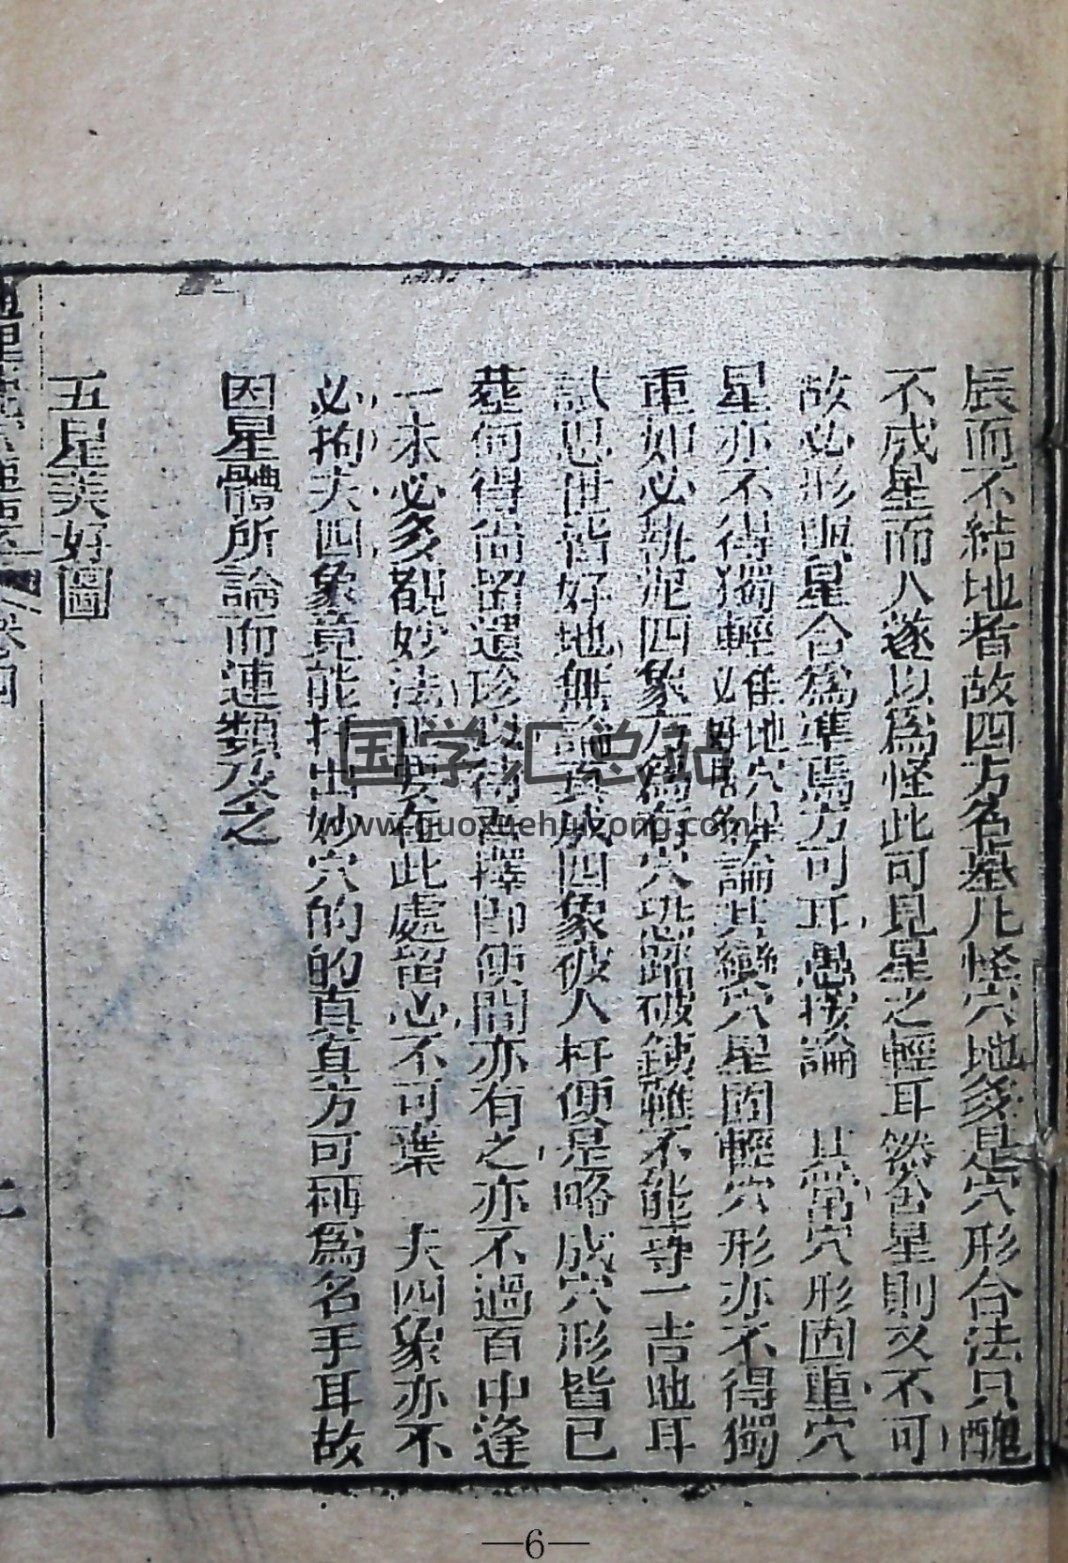 辰而不結地者故四方名墓凡怪穴地多是穴形合法只醜
不成星而人遂以爲怪此可見星之輕耳然舍星則又不可
故必形與星合爲準焉方可耳愚按論 其常穴形固重穴
星亦不得獨輕唯地穴論其變穴星固輕穴形亦不得獨
重如必執泥四象方爲有穴恐踏破鉄鞋不能尋一吉地耳
試思世皆好地無論真成四象破人扦便是略成穴形皆已
塟何得尚留遺珍以待吾擇即使間亦有之亦不過百中逢
一未必多觀妙法要在此處留心不可棄 夫四象亦不
必拘夫四象竟能扦出妙穴的的真真方可稱爲名手耳故
因星體所論而連類及之
五星美好圖
卷四
国学汇总站
www.guoxuehuizong.com
—6—